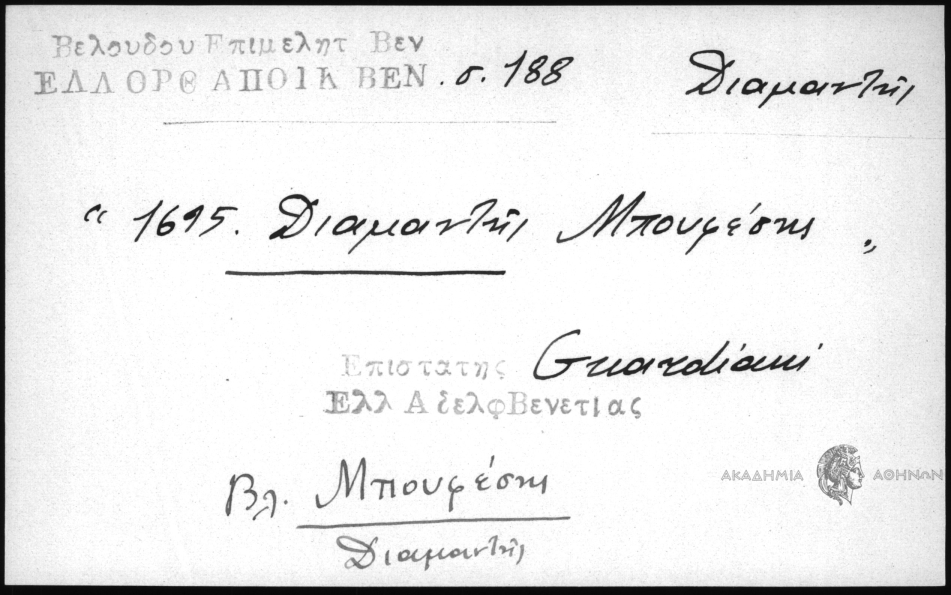 Βελουδου Επιμελητ Βεν
ΕΛΛ ΟΡΘ ΑΠΟΙΚ ΒΕΝ. σ. 188
Διαμαντής
“ 1695. Διαμαντής Μπουφέσης „
Επιστατης Guardiani
Ελλ Αδελφ Βενετιας
Βλ. Μπουφέσης
Διαμαντής
ΑΚΑΔΗΜΙΑ ΑΘΗΝΩΝ